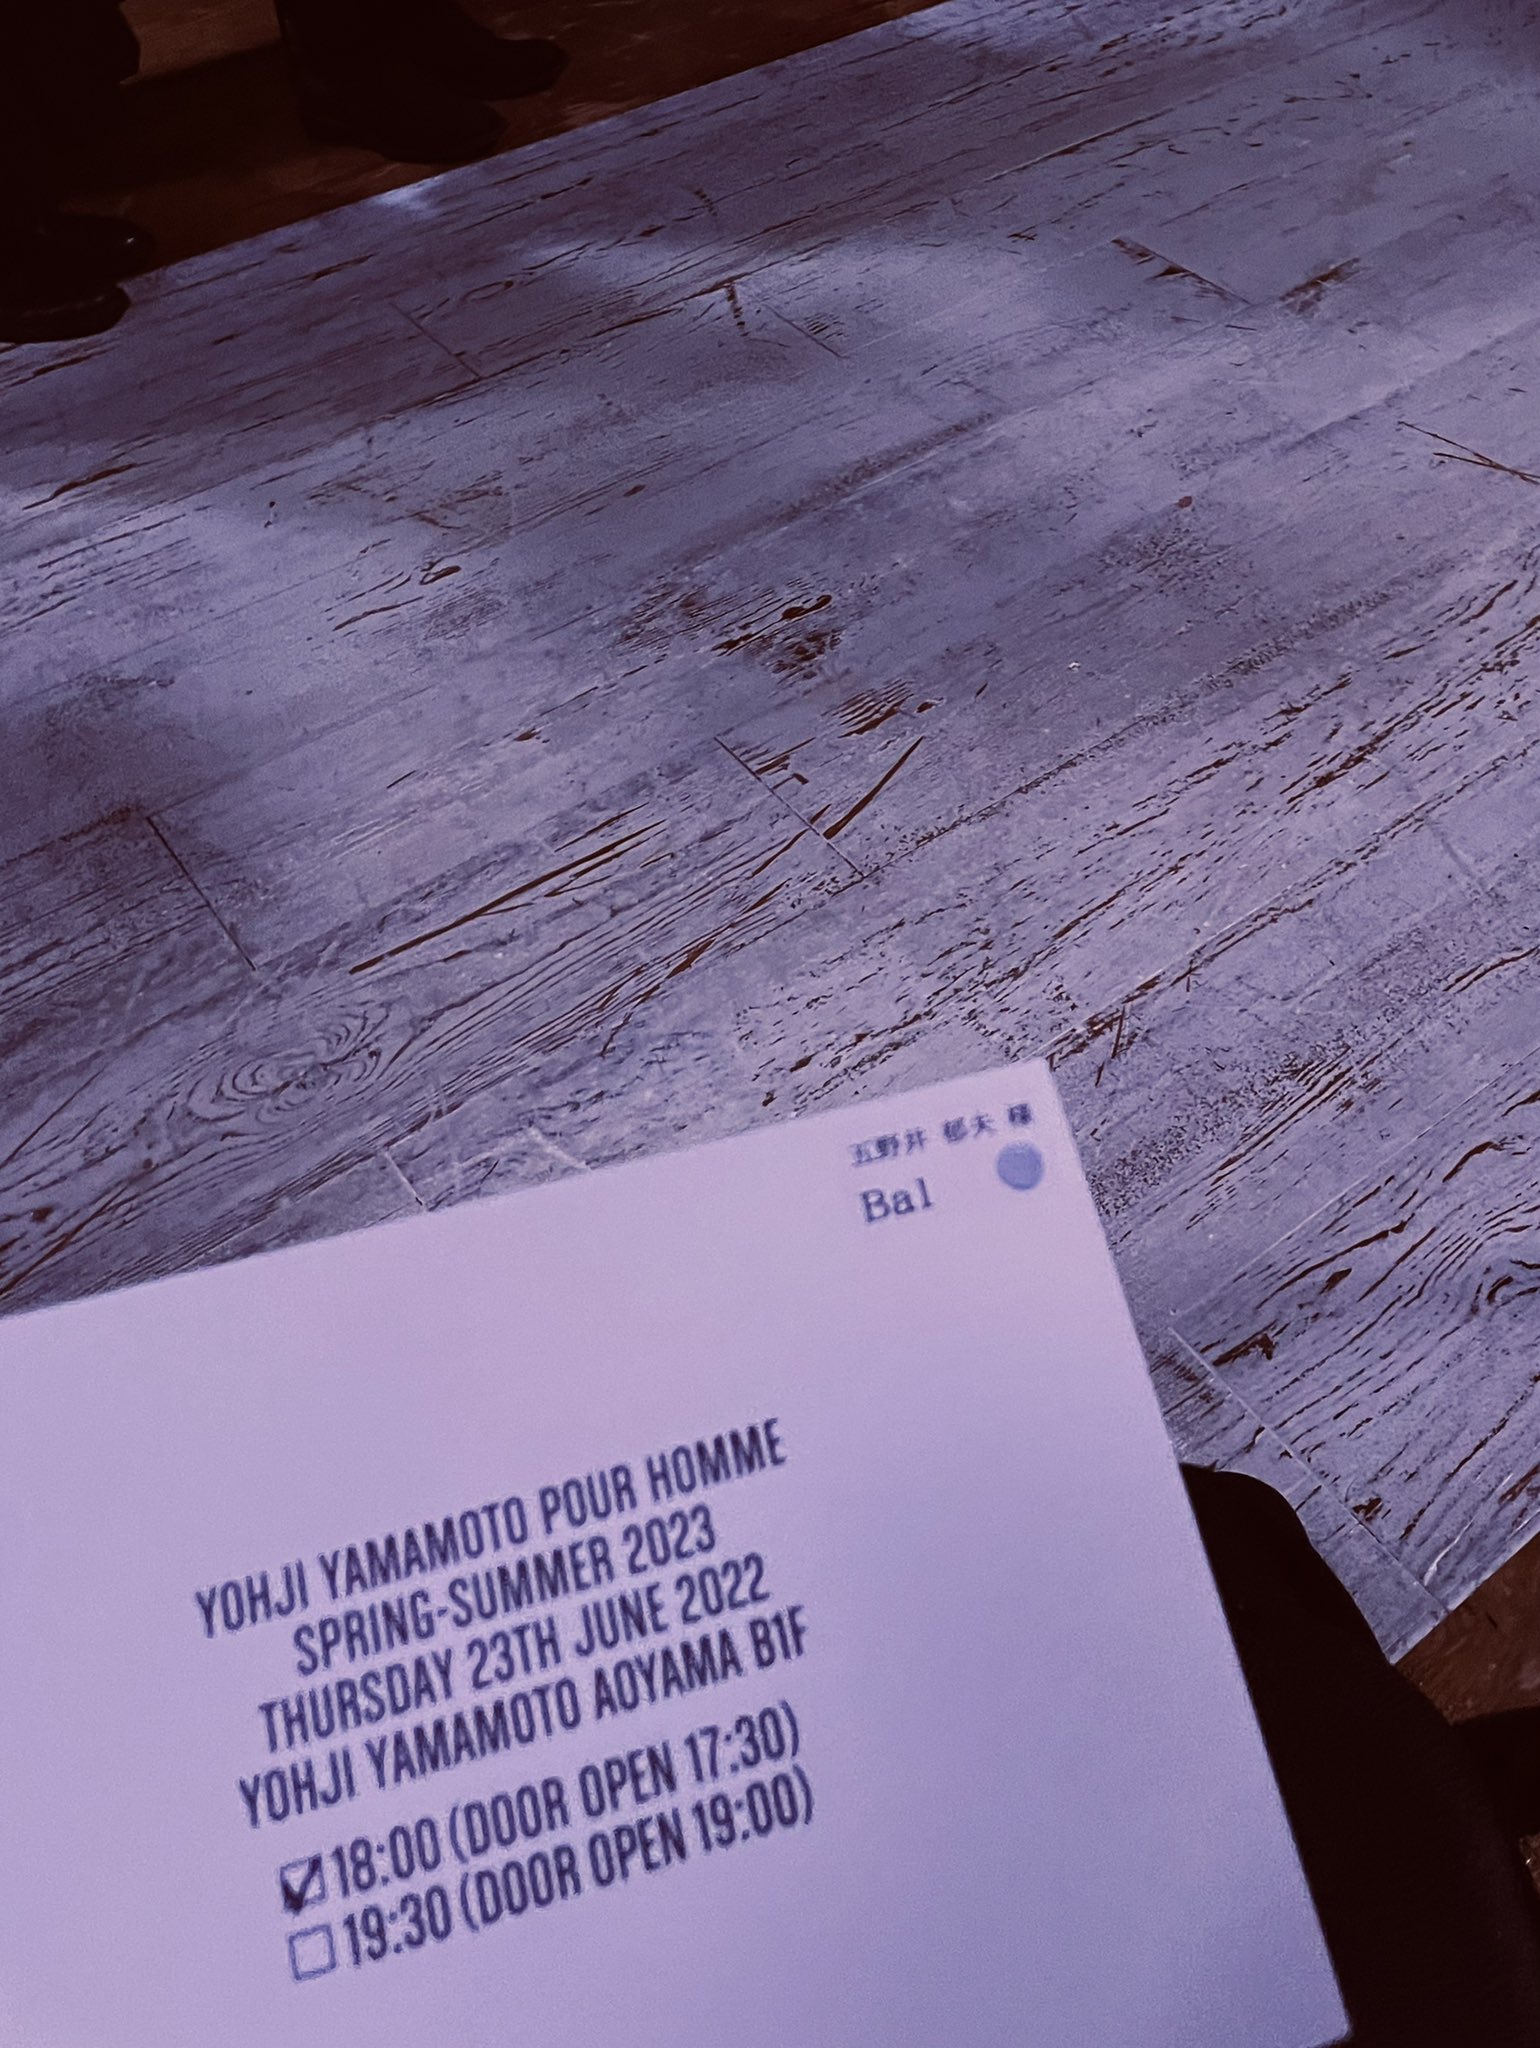 五野井 郁夫 様
Bal
YOHJI YAMAMOTO POUR HOMME
SPRING-SUMMER 2023
THURSDAY 23TH JUNE 2022
YOHJI YAMAMOTO AOYAMA B1F
☑18:00 (DOOR OPEN 17:30)
☐19:30 (DOOR OPEN 19:00)